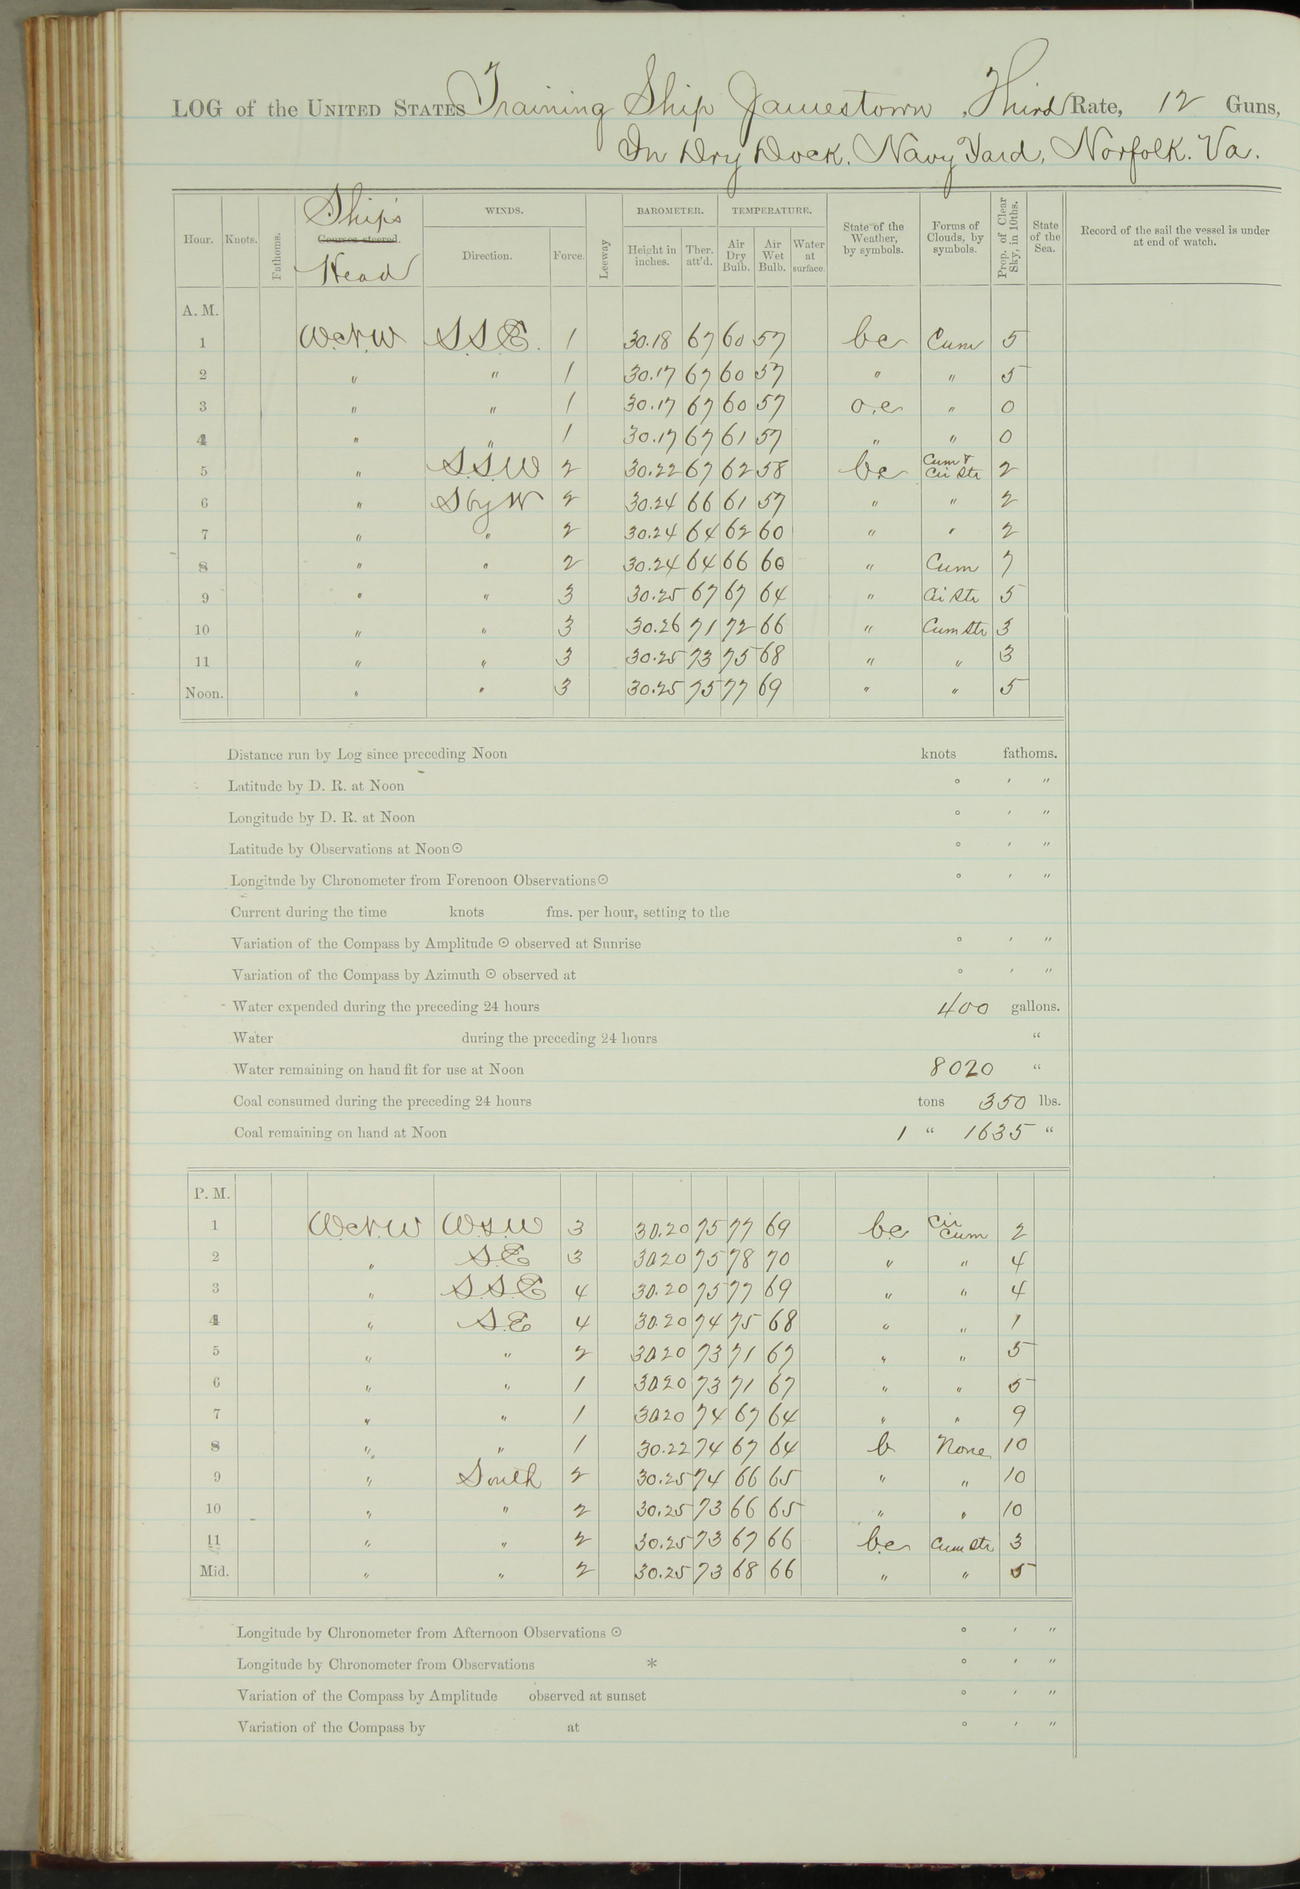 LOG of the UNITED STATES Training Ship Jamestown, Third Rate, 12 Guns,
In Dry Dock, Navy Yard, Norfolk. Va.
Hour. Knots. Fathoms. Ship's Courses steered. Head WINDS. Direction. Force. Leeway BAROMETER. Height in inches. Ther. att'd. TEMPERATURE. Air Dry Bulb. Air Wet Bulb. Water at surface. State of the Weather, by symbols. Forms of Clouds, by symbols. Prop. of Clear Sky, in 10ths. State of the Sea. Record of the sail the vessel is under at end of watch.
A. M.
1 W.N.W S.S.E. 1 30.18 67 60 57 bc Cum 5
2 " " 1 30.17 67 60 57 " " 5
3 " " 1 30.17 67 60 57 o.c " 0
4 " " 1 30.17 67 61 57 " " 0
5 " S.S.W 2 30.22 67 62 58 bc Cum & Cir Str 2
6 " S by W 2 30.24 66 61 57 " " 2
7 " " 2 30.24 64 62 60 " " 2
8 " " 2 30.24 64 66 60 " Cum 7
9 " " 3 30.25 67 67 64 " Cir Str 5
10 " " 3 30.26 71 72 66 " Cum Str 3
11 " " 3 30.25 73 75 68 " " 3
Noon. " " 3 30.25 75 77 69 " " 5
Distance run by Log since preceding Noon knots fathoms.
Latitude by D. R. at Noon ° ′ ″
Longitude by D. R. at Noon ° ′ ″
Latitude by Observations at Noon ☉ ° ′ ″
Longitude by Chronometer from Forenoon Observations ☉ ° ′ ″
Current during the time knots fms. per hour, setting to the
Variation of the Compass by Amplitude ☉ observed at Sunrise ° ′ ″
Variation of the Compass by Azimuth ☉ observed at ° ′ ″
Water expended during the preceding 24 hours 400 gallons.
Water during the preceding 24 hours "
Water remaining on hand fit for use at Noon 8020 "
Coal consumed during the preceding 24 hours tons 350 lbs.
Coal remaining on hand at Noon 1 " 1635 "
P. M.
1 W.N.W W.S.W 3 30.20 75 77 69 b.c Cir Cum 2
2 " S.E 3 3020 75 78 70 " " 4
3 " S.S.E 4 30.20 75 77 69 " " 4
4 " S.E 4 30.20 74 75 68 " " 1
5 " " 2 3020 73 71 67 " " 5
6 " " 1 3020 73 71 67 " " 5
7 " " 1 3020 74 67 64 " " 9
8 " " 1 30.22 74 67 64 b None 10
9 " South 2 30.25 74 66 65 " " 10
10 " " 2 30.25 73 66 65 " " 10
11 " " 2 30.25 73 67 66 b.c Cum Str 3
Mid. " " 2 30.25 73 68 66 " " 5
Longitude by Chronometer from Afternoon Observations ☉ ° ′ ″
Longitude by Chronometer from Observations * ° ′ ″
Variation of the Compass by Amplitude observed at sunset ° ′ ″
Variation of the Compass by at ° ′ ″